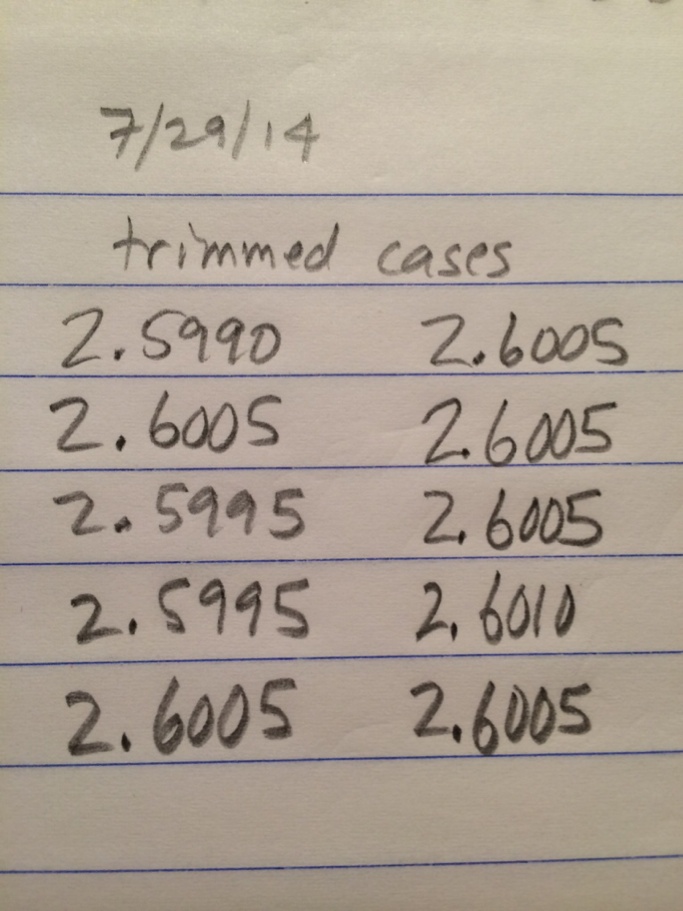 7/29/14
trimmed cases
2.5990 2.6005
2.6005 2.6005
2.5995 2.6005
2.5995 2.6010
2.6005 2.6005